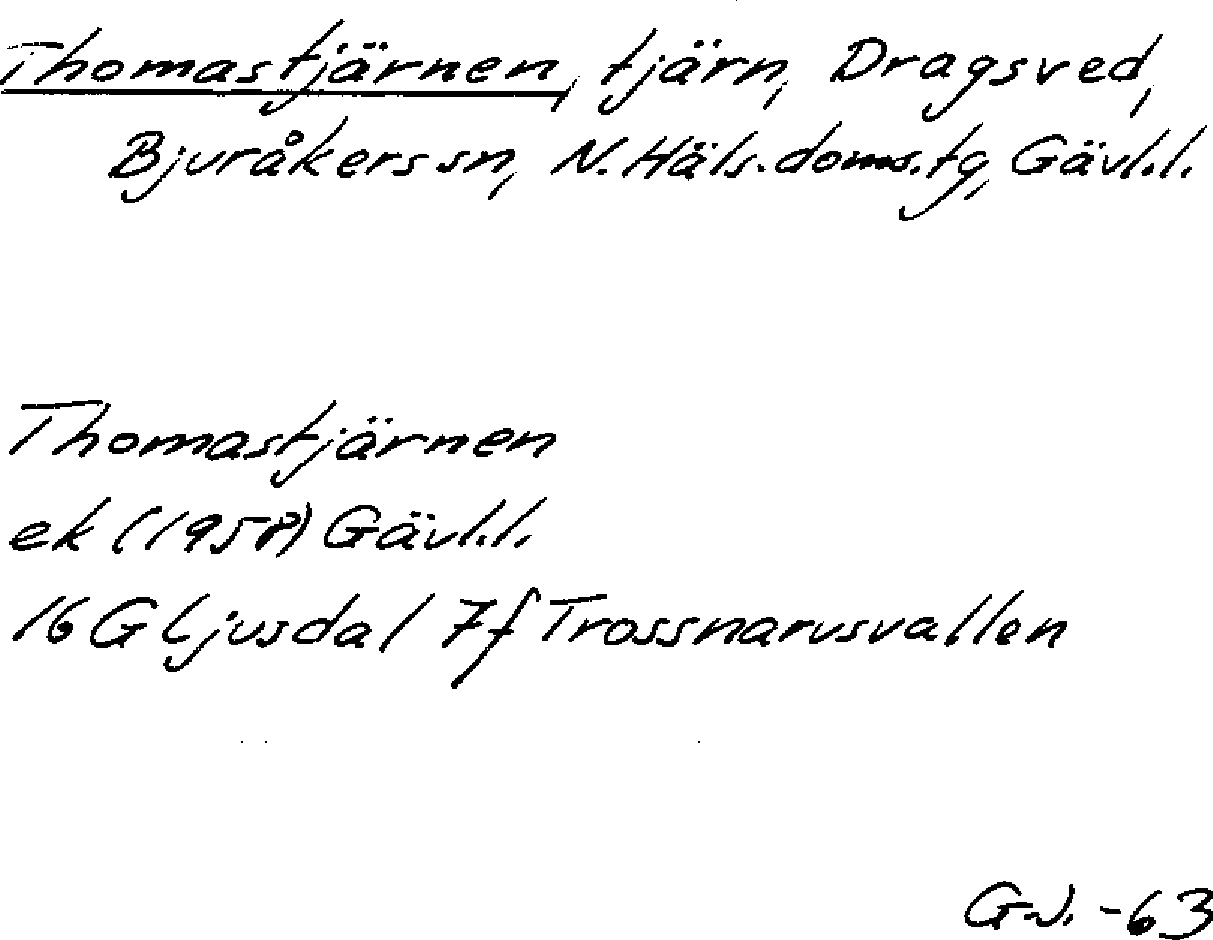 Thomastjärnen, tjärn, Dragsved,
Bjuråkers sn, N. Häls. doms. tg, Gävl.l.
Thomastjärnen
ek (1958) Gävl.l.
16 G Ljusdal 7f Trossnarvsvallen
G.J. -63